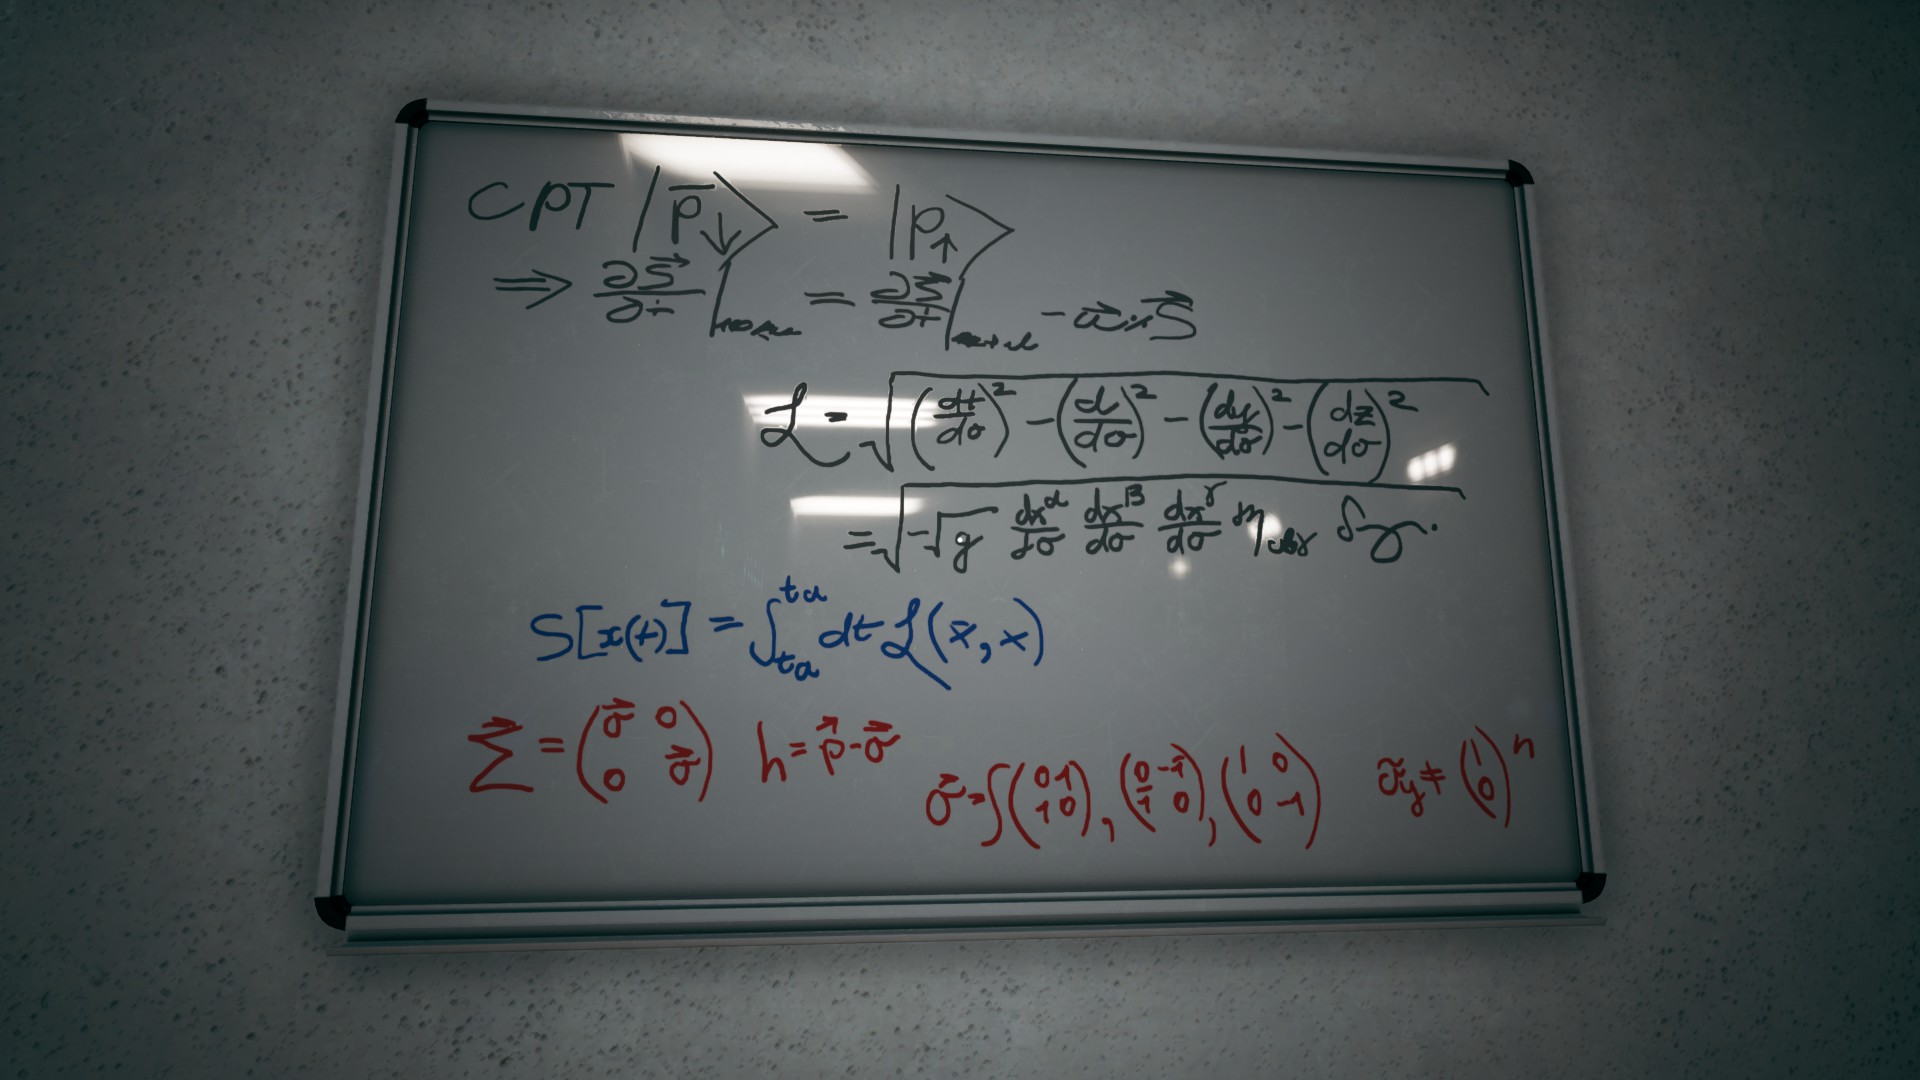 CPT |p̄↓⟩ = |p↑⟩
⇒ ∂S⃗/∂t | = ∂S⃗/∂t | - ω⃗ × S⃗
ℒ = √((dt/dσ)² - (d/dσ)² - (dy/dσ)² - (dz/dσ)²)
= √(-√g dx^α/dσ dx^β/dσ dx^γ/dσ η_αβγ
S[x(t)] = ∫_ta^ta dt ℒ(ẋ, x)
Σ⃗ = (σ⃗ 0 / 0 σ⃗) h = p⃗ - σ⃗
σ⃗ = ∫(0 1 / 1 0), (0 -i / 1 0), (1 0 / 0 -1) σ_y ≠ (1 / 0)ⁿ